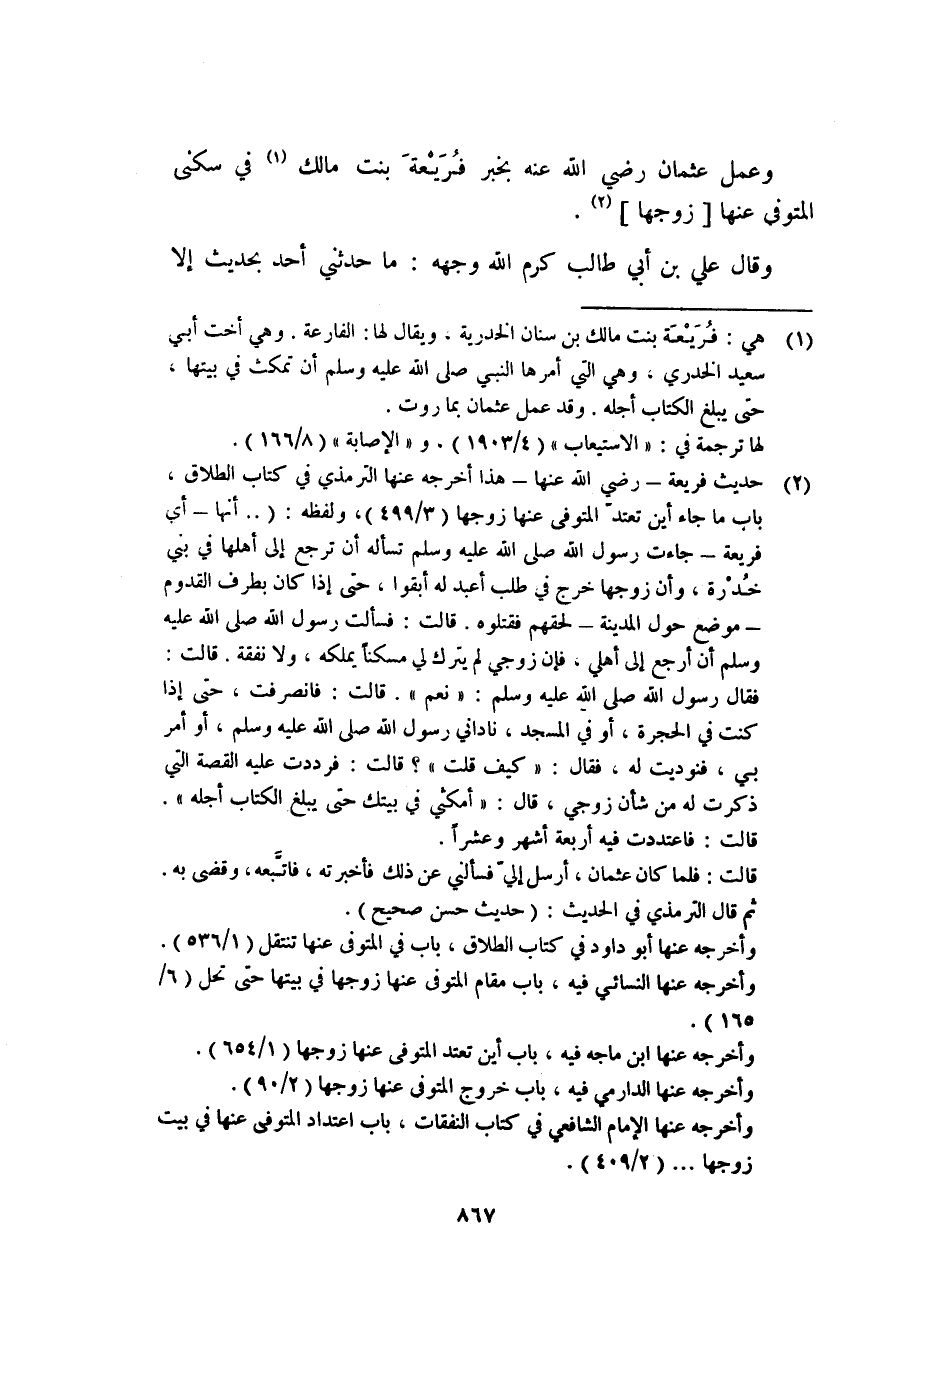 وعمل عثمان رضي الله عنه بخبر فُرَيْعَةَ بنت مالك (١) في سكنى
المتوفى عنها [ زوجها ] (٢) .
وقال علي بن أبي طالب كرم الله وجهه : ما حدثني أحد بحديث إلا
(١) هي : فُرَيْعَة بنت مالك بن سنان الخدرية . ويقال لها : الفارعة . وهي أخت أبي
سعيد الخدري ، وهي التي أمرها النبي صلى الله عليه وسلم أن تمكث في بيتها ،
حتى يبلغ الكتاب أجله . وقد عمل عثمان بما روت .
لها ترجمة في : « الاستيعاب » ( ١٩٠٣/٤ ) . و « الإصابة » ( ١٦٦/٨ ) .
(٢) حديث فريعة – رضي الله عنها – هذا أخرجه عنها الترمذي في كتاب الطلاق ،
باب ما جاء أين تعتدّ المتوفى عنها زوجها ( ٤٩٩/٣ )، ولفظه : ( .. أنها – أي
فريعة – جاءت رسول الله صلى الله عليه وسلم تسأله أن ترجع إلى أهلها في بني
خُدْرة ، وأن زوجها خرج في طلب أعبد له أبقوا ، حتى إذا كان بطرف القدوم
– موضع حول المدينة – لحقهم فقتلوه . قالت : فسألت رسول الله صلى الله عليه
وسلم أن أرجع إلى أهلي ، فإن زوجي لم يترك لي مسكناً يملكه ، ولا نفقة . قالت :
فقال رسول الله صلى الله عليه وسلم : « نعم » . قالت : فانصرفت ، حتى إذا
كنت في الحجرة ، أو في المسجد ، ناداني رسول الله صلى الله عليه وسلم ، أو أمر
بي ، فنوديت له ، فقال : « كيف قلت » ؟ قالت : فرددت عليه القصة التي
ذكرت له من شأن زوجي ، قال : « أمكثي في بيتك حتى يبلغ الكتاب أجله » .
قالت : فاعتددت فيه أربعة أشهر وعشراً .
قالت : فلما كان عثمان ، أرسل إليّ فسألني عن ذلك فأخبرته ، فاتَّبعه، وقضى به .
ثم قال الترمذي في الحديث : ( حديث حسن صحيح ) .
وأخرجه عنها أبو داود في كتاب الطلاق ، باب في المتوفى عنها تنتقل ( ٥٣٦/١ ) .
وأخرجه عنها النسائي فيه ، باب مقام المتوفى عنها زوجها في بيتها حتى تحل ( ٦/
١٦٥ ) .
وأخرجه عنها ابن ماجه فيه ، باب أين تعتد المتوفى عنها زوجها ( ٦٥٤/١ ) .
وأخرجه عنها الدارمي فيه ، باب خروج المتوفى عنها زوجها ( ٩٠/٢ ) .
وأخرجه عنها الإمام الشافعي في كتاب النفقات ، باب اعتداد المتوفى عنها في بيت
زوجها ... ( ٤٠٩/٢ ) .
٨٦٧